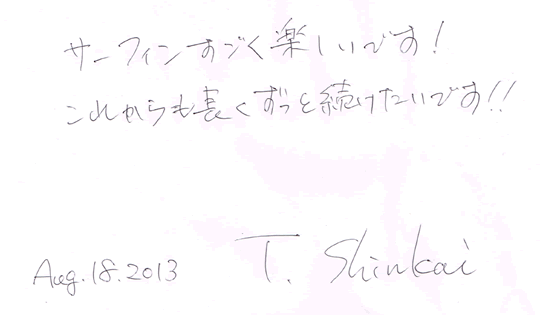 サーフィンすごく楽しいです!
これからも長くずっと続けたいです!!
Aug.18.2013 T. Shinkai